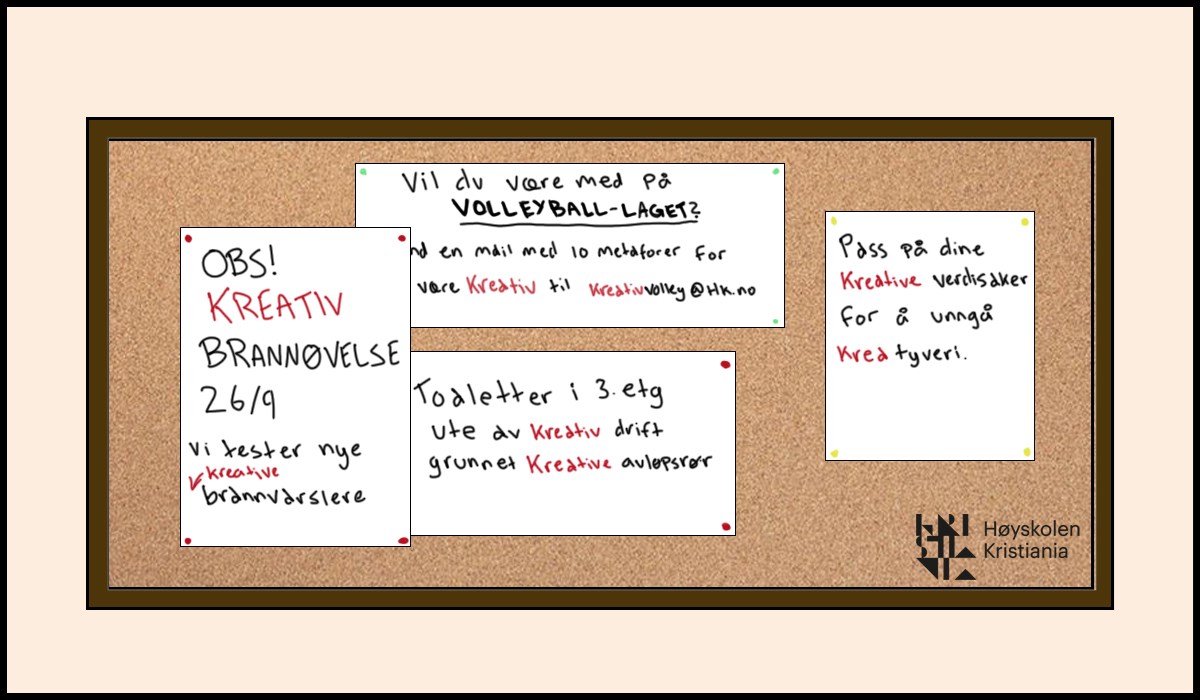 Vil du være med på
VOLLEYBALL-LAGET?
en mail med 10 metaforer for
være Kreativ til Kreativvolley@HK.no
OBS!
KREATIV
BRANNØVELSE
26/9
Vi tester nye
kreative
brannvarslere
Toaletter i 3. etg
ute av Kreativ drift
grunnet Kreative avløpsrør
Pass på dine
Kreative verdisaker
for å unngå
Kred tyveri.
Høyskolen
Kristiania